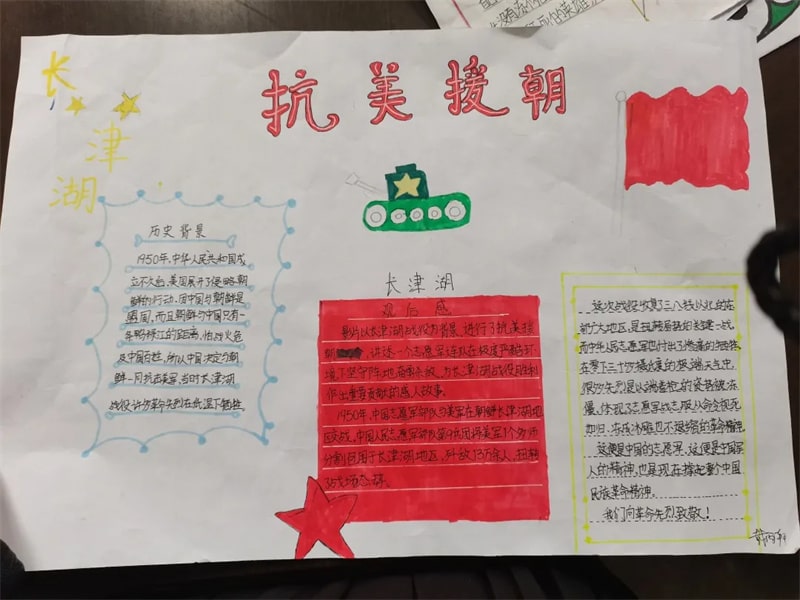 抗美援朝
长
津
湖
历史背景
1950年,中华人民共和国成
立不久后,美国展开了侵略朝
鲜的行动,因中国与朝鲜是
盟国,而且朝鲜与中国只有一
年鸭绿江的距离,怕战火危
及中国百姓,所以中国决定与朝
鲜一同抗击美军,当时长津湖
战役许多革命先烈在此温下牺牲。
长津湖
观后感
影片以长津湖战役为背景,进行了抗美援
朝 讲述一个志愿军连队在极度严酷环
境下坚守阵地奋勇杀敌,为长津湖战役胜利
作出重要贡献的感人故事。
1950年,中国志愿军部队与美军在朝鲜长津湖地
区交战,中国人民志愿军部队第9兵团将美军1个多师
分割包围于长津湖地区,歼敌1.3万余人,扭转
了战场态势。
这次战役恢复了三八线以北的东
部广大地区,是互为关键的一战,
而中华人民志愿军也付出了惨痛的牺牲
在零下三十多摄氏度的极端天气中,
很多先烈是以端着枪的姿势被冻
僵,体现了志愿军战士服从命令视死
如归,冻成冰雕也不退缩的革命精神。
这便是中国的志愿军,这便是中国军
人的精神,也是现在撑起整个中国
民族革命精神。
我们向革命先烈致敬!